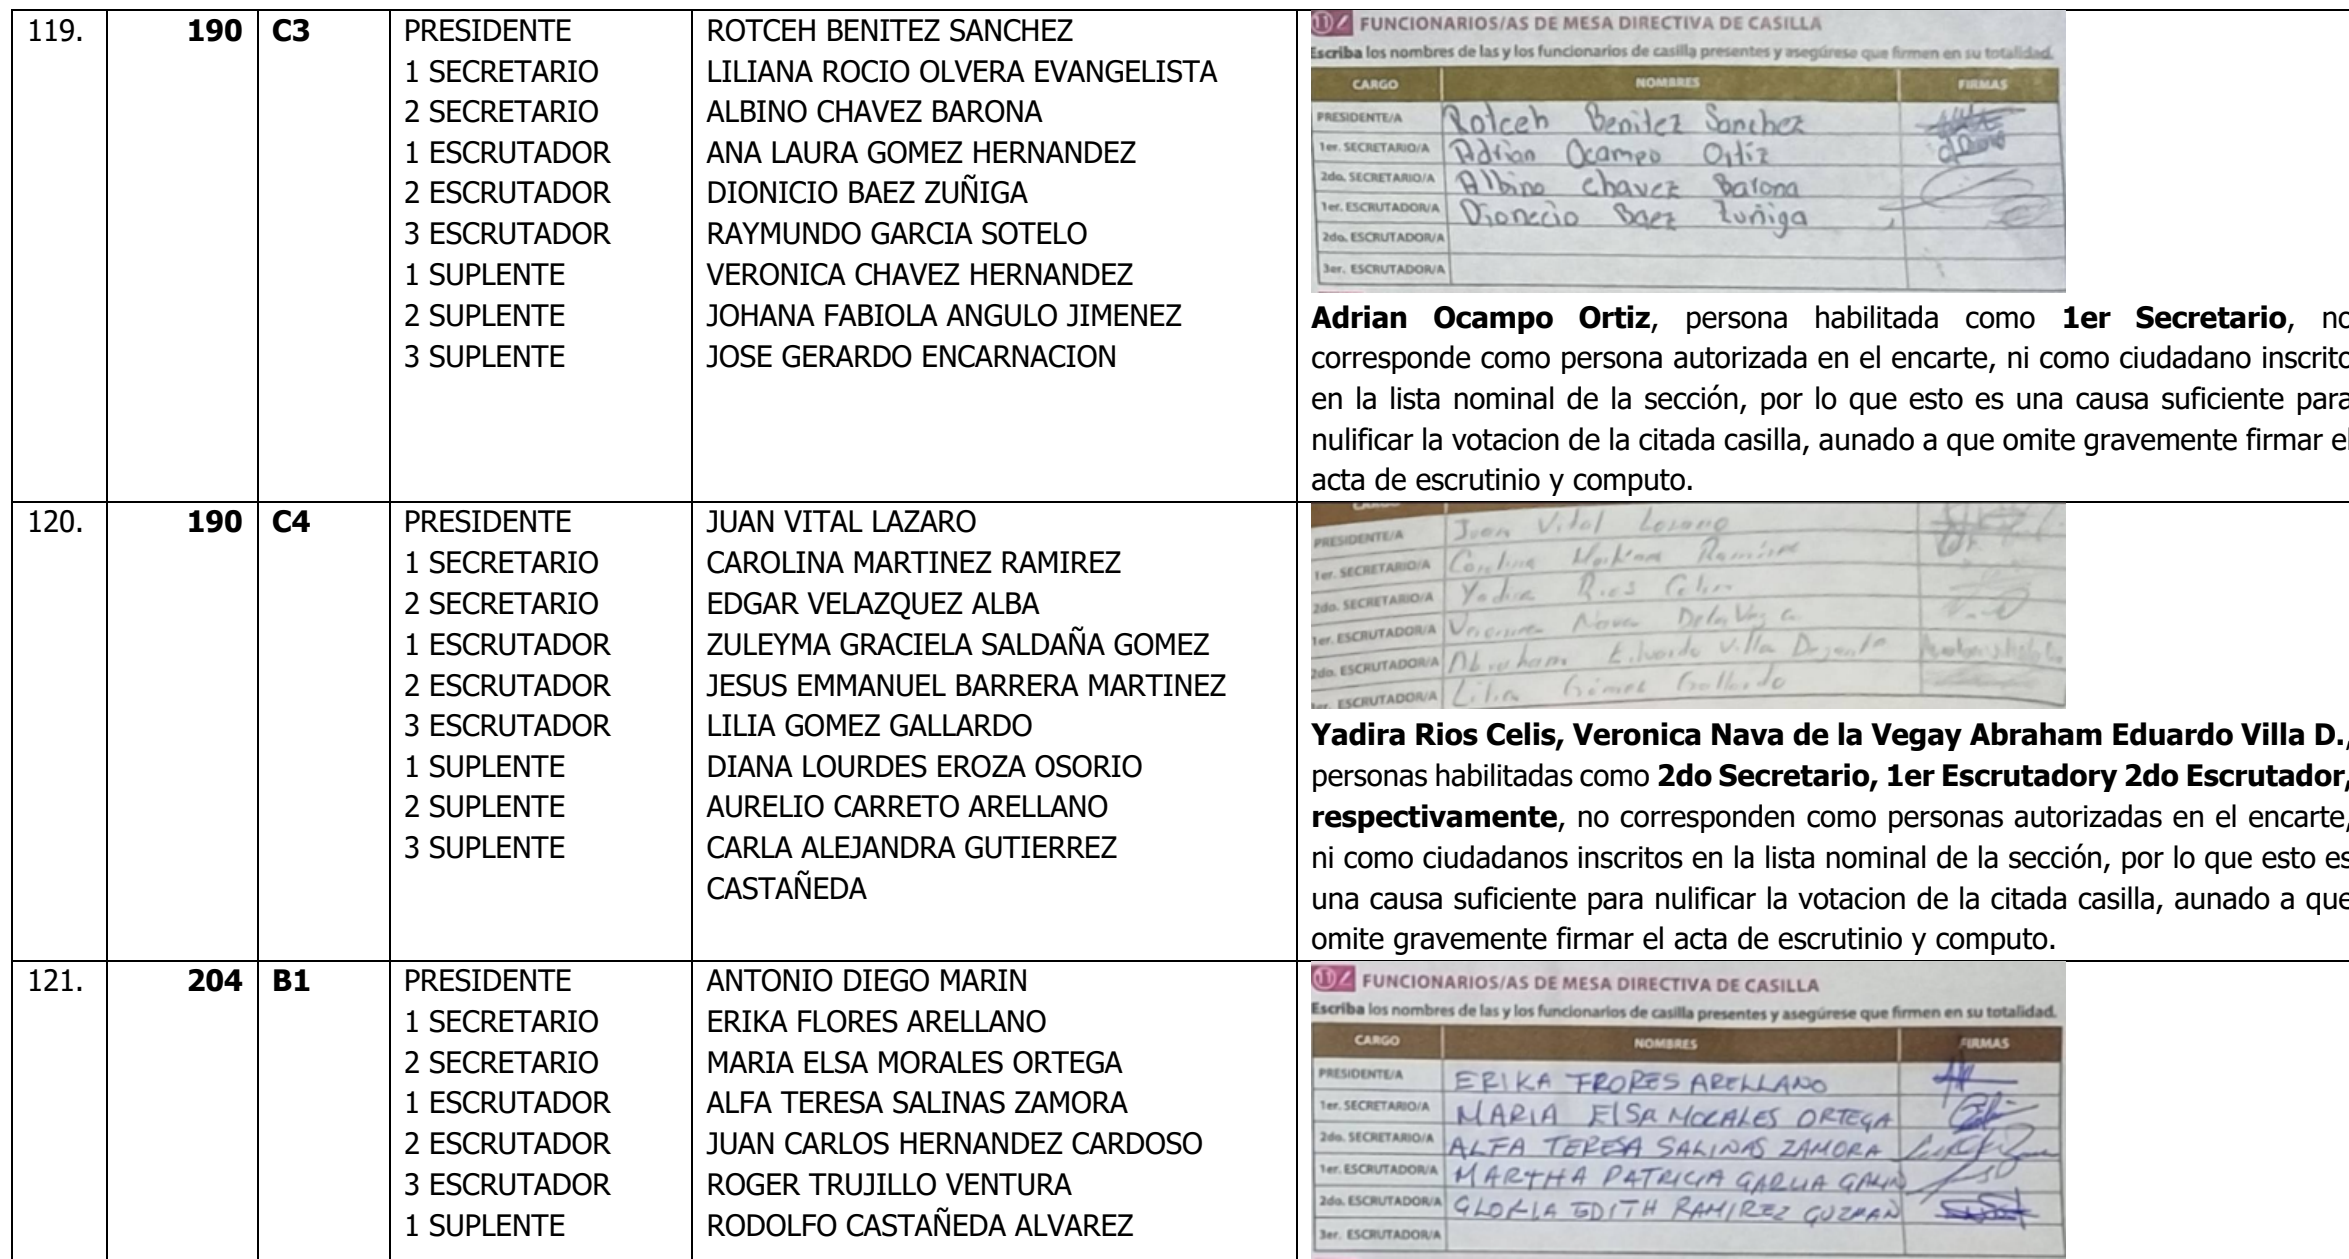 119.
190
C3
PRESIDENTE
1 SECRETARIO
2 SECRETARIO
1 ESCRUTADOR
2 ESCRUTADOR
3 ESCRUTADOR
1 SUPLENTE
2 SUPLENTE
3 SUPLENTE
ROTCEH BENITEZ SANCHEZ
LILIANA ROCIO OLVERA EVANGELISTA
ALBINO CHAVEZ BARONA
ANA LAURA GOMEZ HERNANDEZ
DIONICIO BAEZ ZUÑIGA
RAYMUNDO GARCIA SOTELO
VERONICA CHAVEZ HERNANDEZ
JOHANA FABIOLA ANGULO JIMENEZ
JOSE GERARDO ENCARNACION
11 FUNCIONARIOS/AS DE MESA DIRECTIVA DE CASILLA
Escriba los nombres de las y los funcionarios de casilla presentes y asegúrese que firmen en su totalidad.
CARGO NOMBRES FIRMAS
PRESIDENTE/A Rotceh Benitez Sanchez
1er. SECRETARIO/A Adrian Ocampo Ortiz
2do. SECRETARIO/A Albino chavez Barona
1er. ESCRUTADOR/A Dionecio Baez Zuñiga
2do. ESCRUTADOR/A
3er. ESCRUTADOR/A
Adrian Ocampo Ortiz, persona habilitada como 1er Secretario, no
corresponde como persona autorizada en el encarte, ni como ciudadano inscrito
en la lista nominal de la sección, por lo que esto es una causa suficiente para
nulificar la votacion de la citada casilla, aunado a que omite gravemente firmar el
acta de escrutinio y computo.
120.
190
C4
PRESIDENTE
1 SECRETARIO
2 SECRETARIO
1 ESCRUTADOR
2 ESCRUTADOR
3 ESCRUTADOR
1 SUPLENTE
2 SUPLENTE
3 SUPLENTE
JUAN VITAL LAZARO
CAROLINA MARTINEZ RAMIREZ
EDGAR VELAZQUEZ ALBA
ZULEYMA GRACIELA SALDAÑA GOMEZ
JESUS EMMANUEL BARRERA MARTINEZ
LILIA GOMEZ GALLARDO
DIANA LOURDES EROZA OSORIO
AURELIO CARRETO ARELLANO
CARLA ALEJANDRA GUTIERREZ
CASTAÑEDA
CARGO
PRESIDENTE/A Juan Vital
1er. SECRETARIO/A Carolina Ramirez
2do. SECRETARIO/A Yadira Rios Celis
1er. ESCRUTADOR/A Veronica Nava
2do. ESCRUTADOR/A Abraham Eduardo Villa
3er. ESCRUTADOR/A Lilia Gómez Gallardo
Yadira Rios Celis, Veronica Nava de la Vegay Abraham Eduardo Villa D.,
personas habilitadas como 2do Secretario, 1er Escrutadory 2do Escrutador,
respectivamente, no corresponden como personas autorizadas en el encarte,
ni como ciudadanos inscritos en la lista nominal de la sección, por lo que esto es
una causa suficiente para nulificar la votacion de la citada casilla, aunado a que
omite gravemente firmar el acta de escrutinio y computo.
121.
204
B1
PRESIDENTE
1 SECRETARIO
2 SECRETARIO
1 ESCRUTADOR
2 ESCRUTADOR
3 ESCRUTADOR
1 SUPLENTE
ANTONIO DIEGO MARIN
ERIKA FLORES ARELLANO
MARIA ELSA MORALES ORTEGA
ALFA TERESA SALINAS ZAMORA
JUAN CARLOS HERNANDEZ CARDOSO
ROGER TRUJILLO VENTURA
RODOLFO CASTAÑEDA ALVAREZ
11 FUNCIONARIOS/AS DE MESA DIRECTIVA DE CASILLA
Escriba los nombres de las y los funcionarios de casilla presentes y asegúrese que firmen en su totalidad.
CARGO NOMBRES FIRMAS
PRESIDENTE/A ERIKA FRORES ARELLANO
1er. SECRETARIO/A MARIA ElSA MORALES ORTEGA
2do. SECRETARIO/A ALFA TERESA SALINAS ZAMORA
1er. ESCRUTADOR/A MARTHA PATRICIA GARCIA
2do. ESCRUTADOR/A GLORIA EDITH RAMIREZ GUZMAN
3er. ESCRUTADOR/A